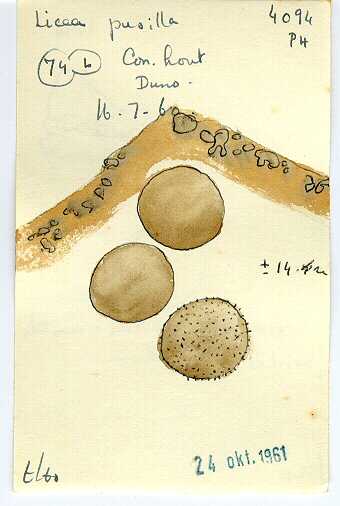 Licea pusilla
4094
PH
74 L Con. hout
Duno.
16-7-6
± 14
24 okt. 1961